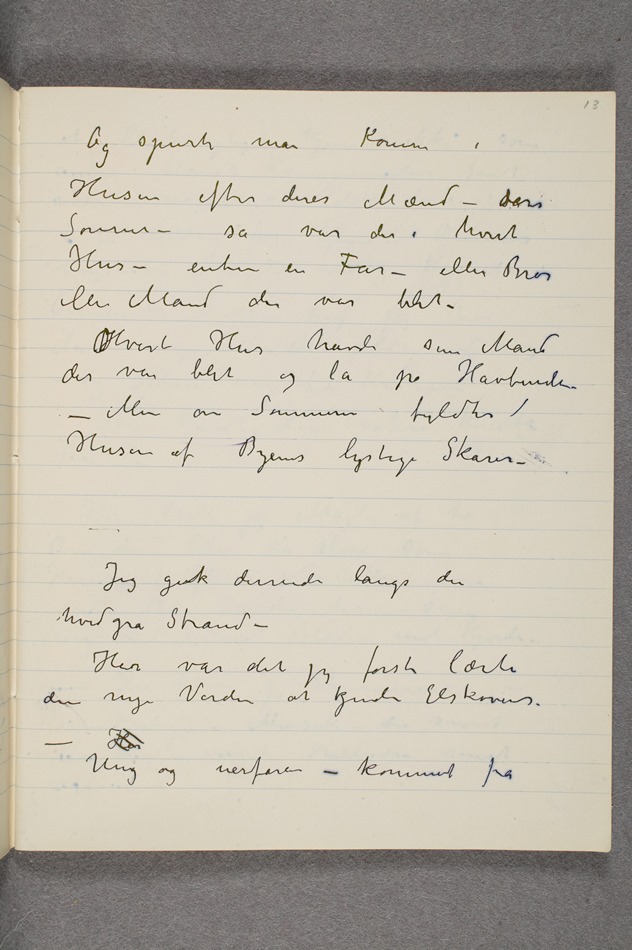 13
Og spurte man Konene i
Husene efter deres Mænd – deres
Sønner – så var der i hvert
Hus – enten en Far – eller Bror
eller Mand der var blet –
Hvert Hus havde sin Mand
der var blet og lå på Havbunden –
– Men om Sommeren fyldtes /
Husene af Byens lystige Skarer –
Jeg gik derinde langs den
hvidgrå Strand –
Her var det jeg først lærte
den nye Verden at kjende Elskovens.
–
Ung og uerfaren – kommet fra